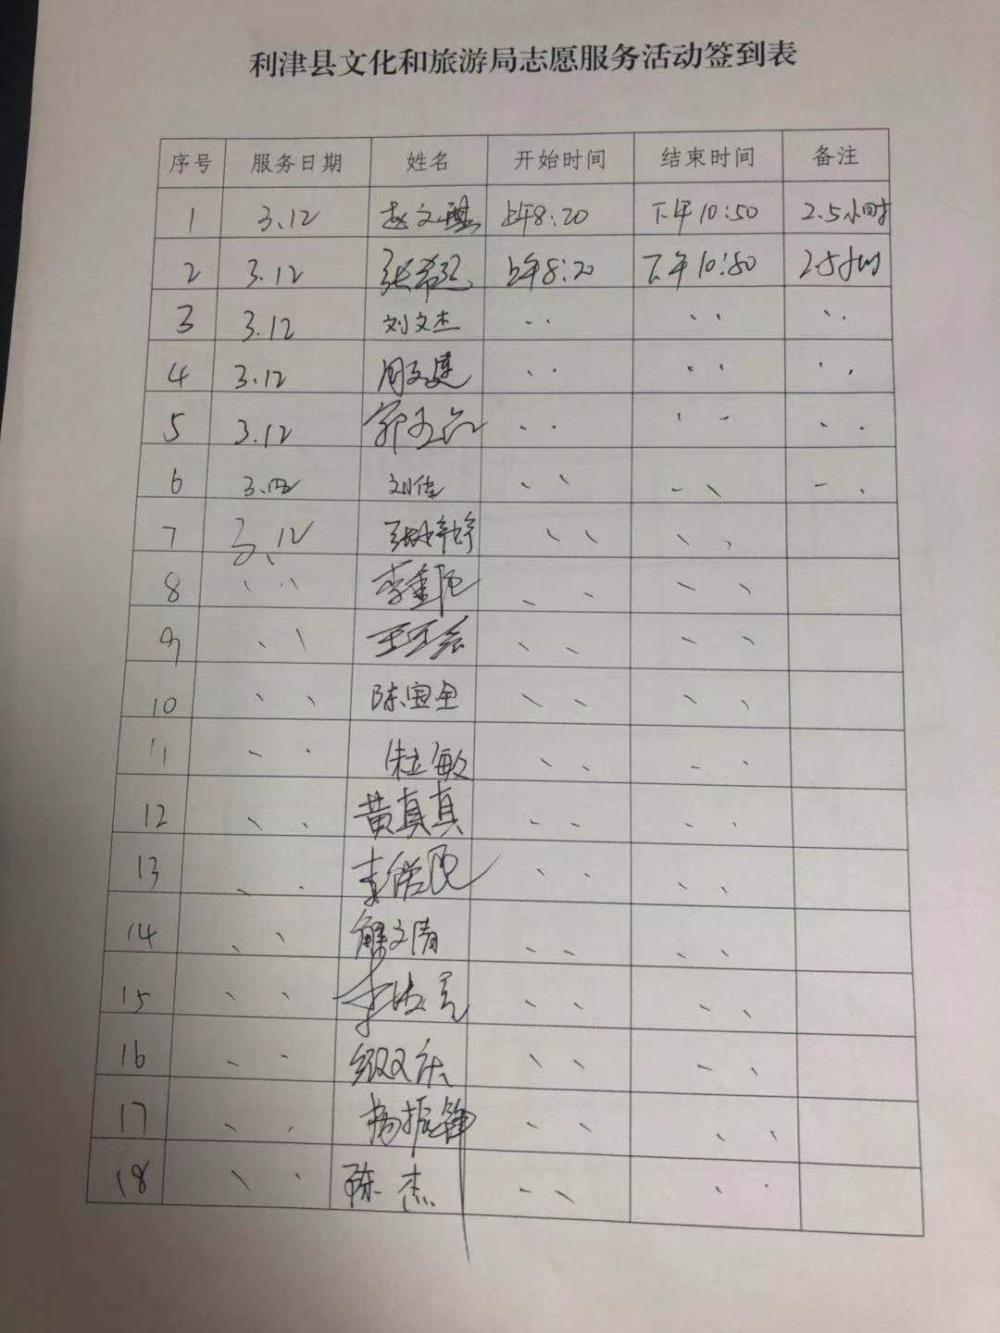 利津县文化和旅游局志愿服务活动签到表
序号 服务日期 姓名 开始时间 结束时间 备注
1 3.12 赵文 上午8:20 下午10:50 2.5小时
2 3.12 张希 上午8:20 下午10:50 2.5小时
3 3.12 刘文杰 〃 〃 〃
4 3.12 周文建 〃 〃 〃
5 3.12 郭 〃 〃 〃
6 3.12 刘佳 〃 〃 〃
7 3.12 张婷婷 〃 〃
8 〃 李重阳 〃 〃
9 〃 王 〃 〃
10 〃 陈宝全 〃 〃
11 〃 朱立敏 〃 〃
12 〃 黄真真 〃 〃
13 〃 李 〃 〃
14 〃 解文清 〃 〃
15 〃 李 〃 〃
16 〃 〃 〃
17 〃 杨振锋 〃 〃
18 〃 陈杰 〃 〃